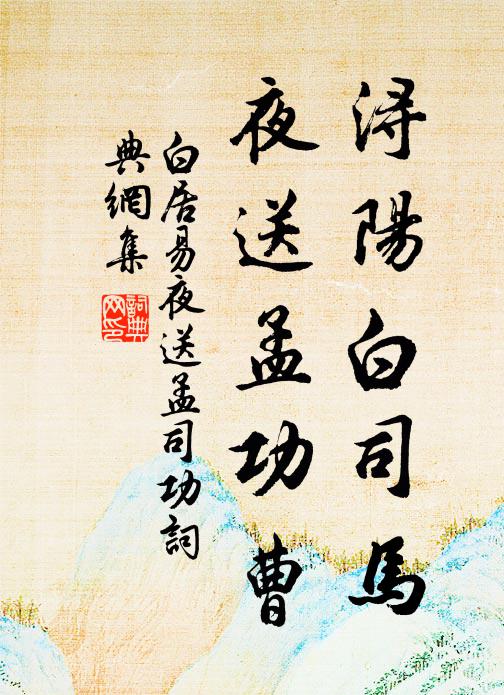 潯陽白司馬
夜送孟功曹
白居易夜送孟司功詞
典網集
詞典
网印